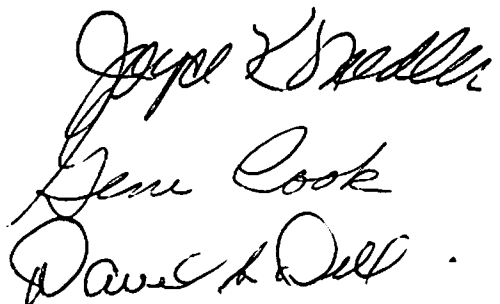 Joyce K Shedler
Gene Cook
David L Dell